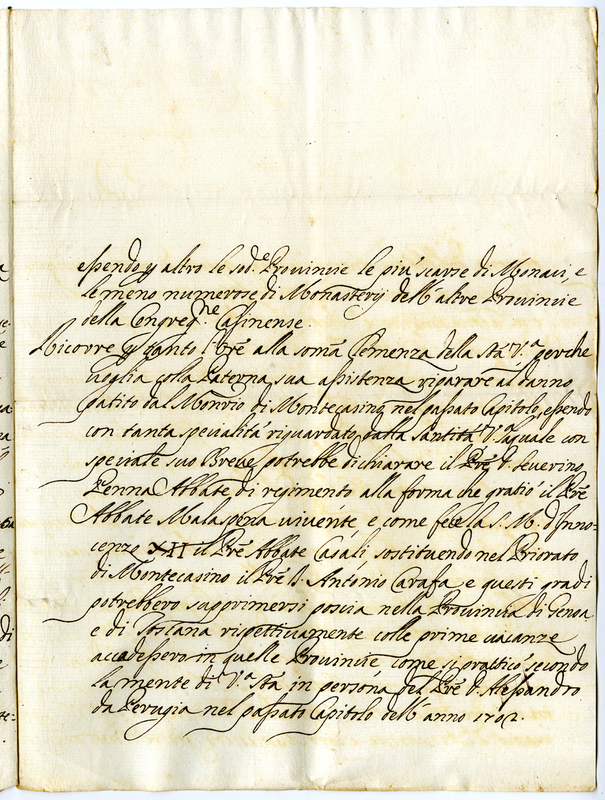 essendo p altro le sod.e Provincie le più scarse di Monaci, e
le meno numerose di Monasterij dell'altre Provincie
della Congreg.ne Casinense.
Ricorre p tanto l'Ore alla somã Clemenza della Stà V.a perche
voglia colla Paterna sua assistenza riparare al danno
patito dal Monrio di Montecasino nel passato Capitolo, essendo
con tanta specialità riguardato dalla Santità V.a la quale con
speciale suo Breve potrebbe dichiarare il Pre D. Severino
Penna Abbate di regimento alla forma che gratiò il Pre
Abbate Malaspina vivente, e come fece la S. M. d'Inno-
cenzo XII il Pre Abbate Casali, sostituendo nel Priorato
di Montecasino il Pre D. Antonio Carafa e questi gradi
potrebbero supprimersi poscia nella Provincia di Genoa
e di Toscana rispettivamente colle prime vacanze
accadessero in quelle Provincie come si pratticò secondo
la mente di V.a Stà in persona del Pre D. Alessandro
da Perugia nel passato Capitolo dell'anno 1702.